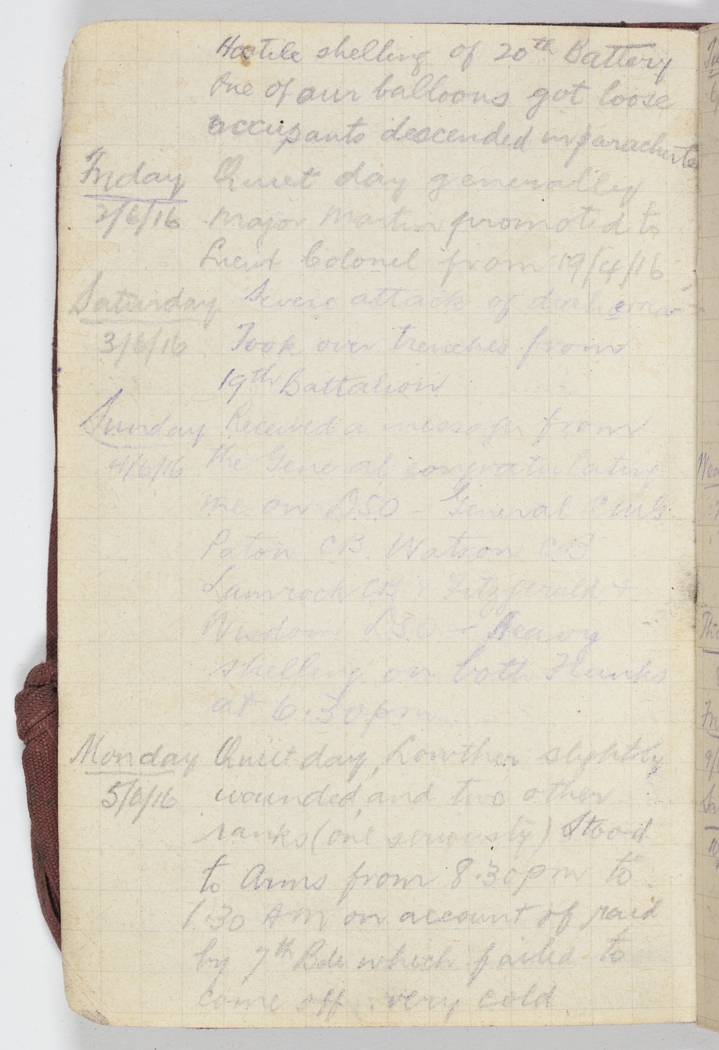 Hostile shelling of 20th Battery
One of our balloons got loose
occupants descended in parachutes
Friday Quiet day generally
2/6/16 Major Martin promoted to
Lieut Colonel from 19/4/16
Saturday Severe attack of diarhoea
3/6/16 Took over trenches from
19th Battalion
Sunday Received a message from
4/6/16 the General congratulating
me on DSO - General
Paton CB. Watson CB
Lamrock CB & Fitzgerald +
Wisdom DSO - Heavy
shelling on both Flanks
at 6.30pm
Monday Quiet day, Lowther slightly
5/6/16 wounded, and two other
ranks (one seriously) Stood
to Arms from 8.30pm to
1.30 AM on account of raid
by 7th Bde which failed to
come off. very cold